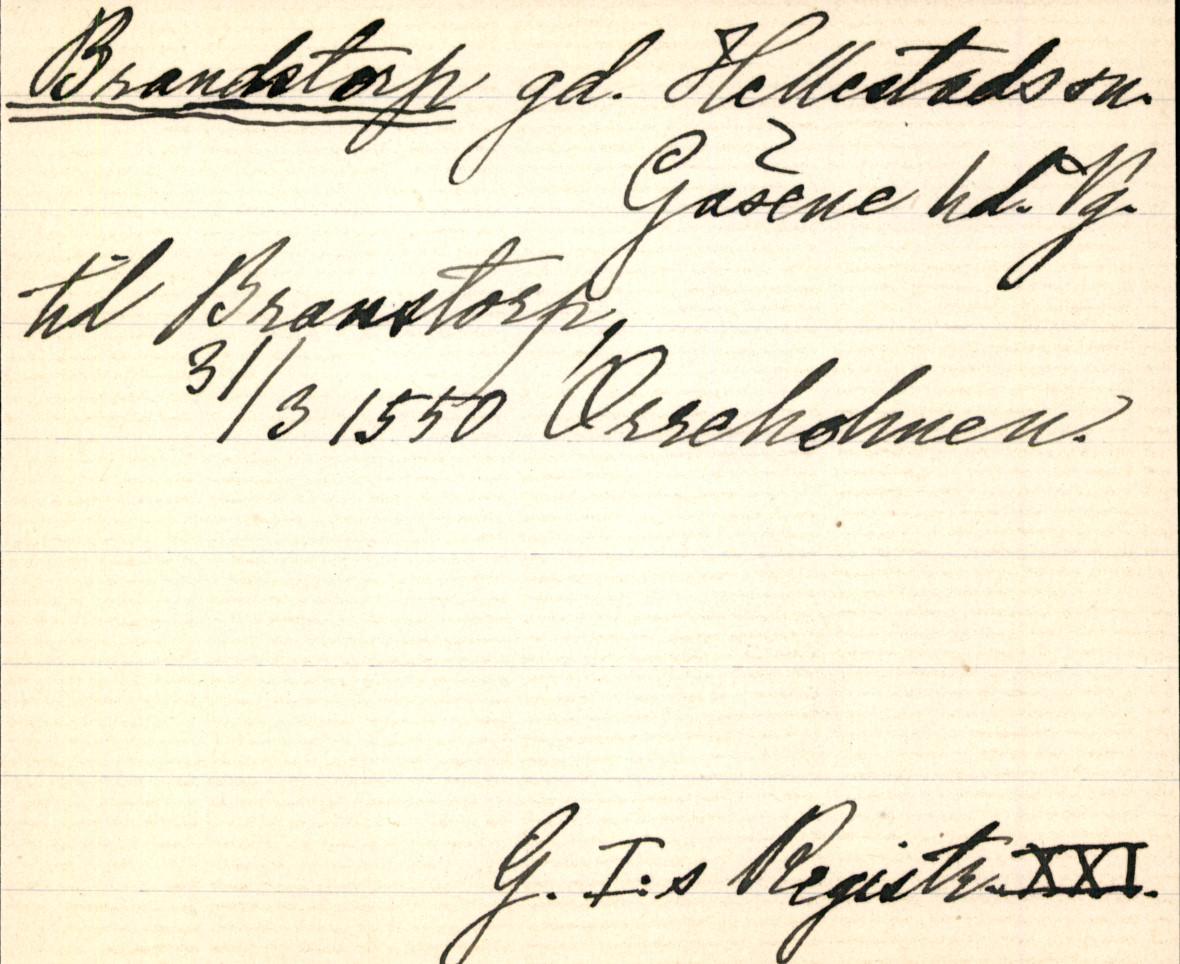 Brandstorp gd. Hellestads sn.
Gäsene hd. Vg.
till Branstorp,
31/3 1550 Örreholmen.
G. I:s Registr. XXI.